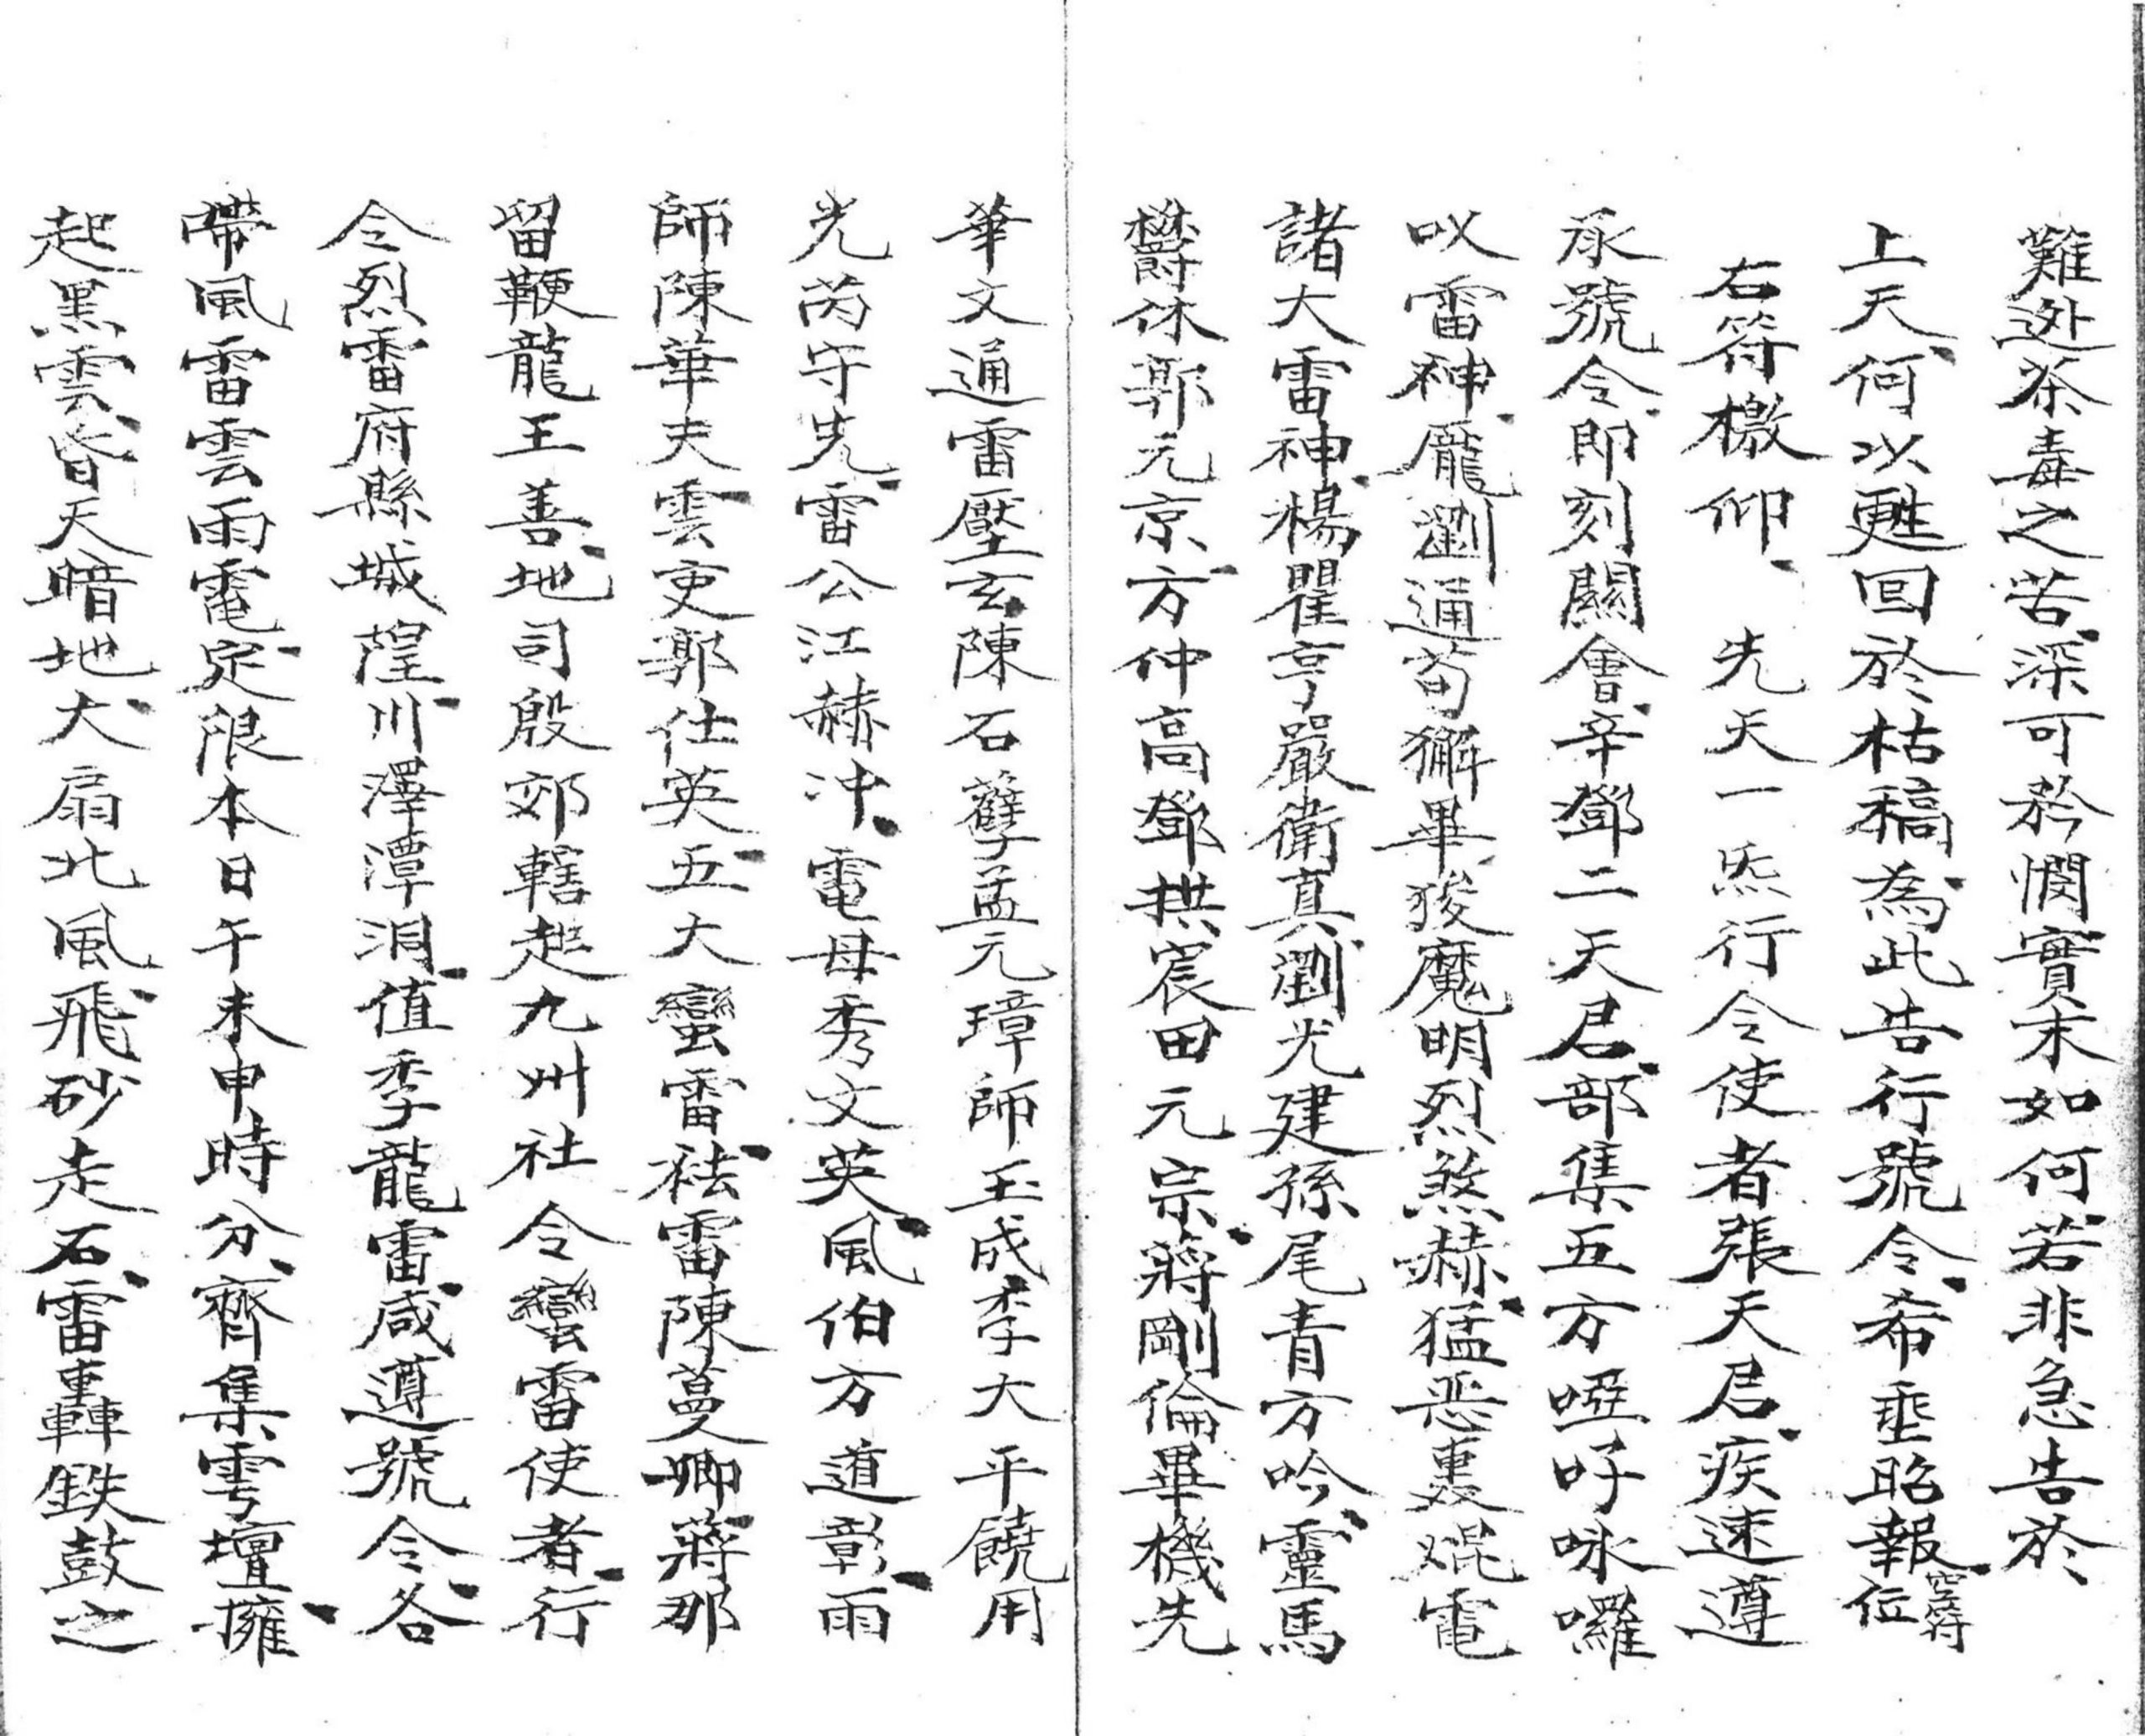 難逊荼毒之苦深可矜憫實未如何若非急告於
上天何以甦回於枯稿為此告行號令希垂昭報空符位
右符檄仰 先天一炁行令使者張天君疾速遵
承號令即刻關會辛鄧二天君部集五方啞吁咏囉
呌雷神龐瀏通苟獬畢狻魔明烈煞赫猛惡電
諸大雷神楊瞿亨嚴衛真瀏光建孫尾青方吟靈馬
欝休郭元京方仲高鄧拱宸田元宗蔣剛倫畢機先
華文通雷壓玄陳石孽孟元璋師玉成李大平饒用
光芮守光雷公江赫冲電母秀文英風伯方道彰雨
師陳華夫雲吏郭仕英五大蠻雷袪雷陳蔓卿蔣那
留鞭龍王善地司殷郊轄起九州社令蠻雷使者行
令烈雷府縣城隍川澤潭洞值季龍雷咸遵號令各
帶風雷雲雨電定限本日午未申時分齊集雩壇擁
起黑雲昏天暗地大扇北風飛砂走石雷轟鉄鼓之